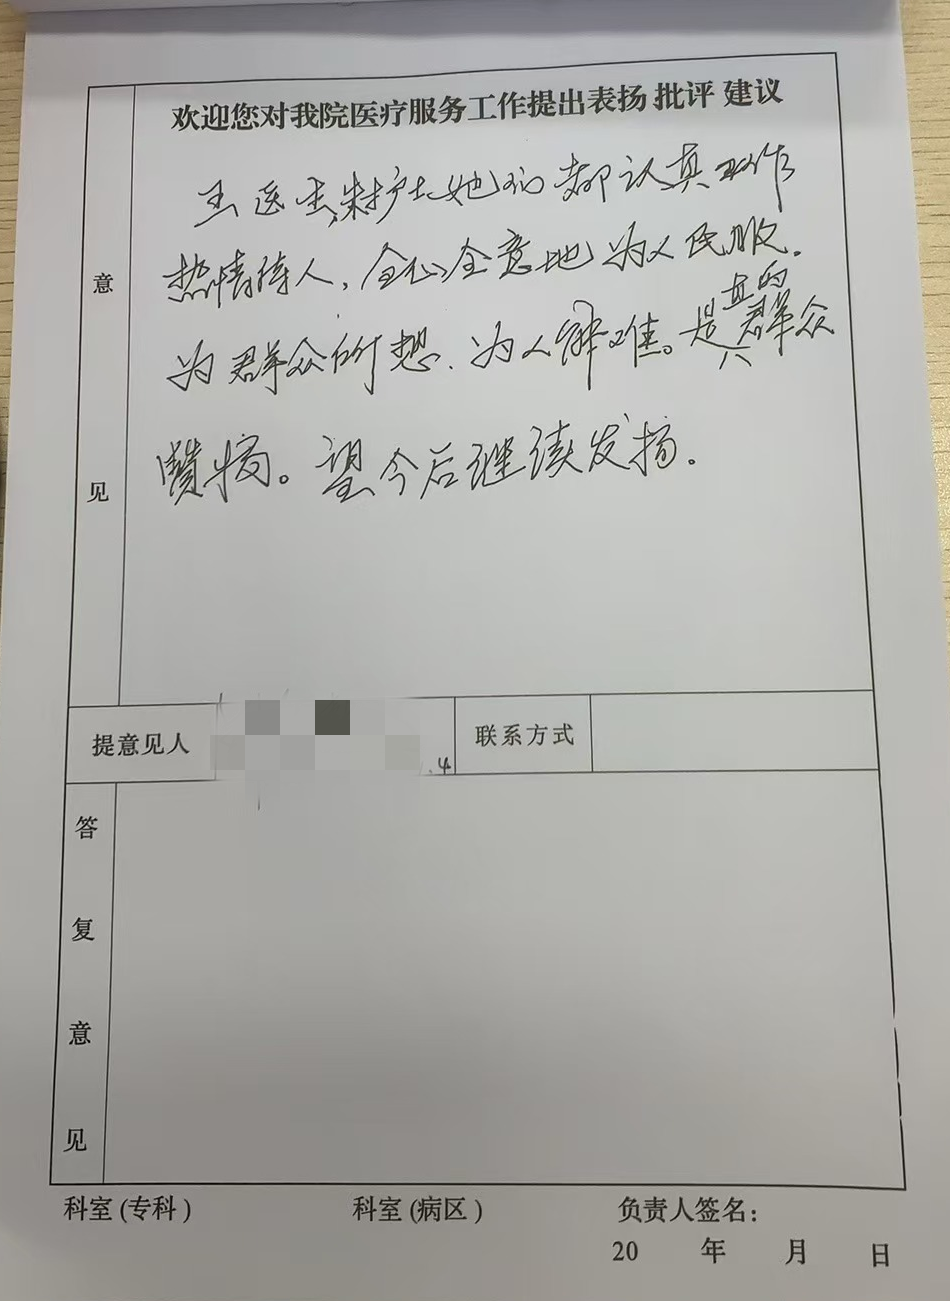 欢迎您对我院医疗服务工作提出表扬 批评 建议
意见
王医生,朱护士她们都认真工作
热情待人,全心全意地为人民服。
为群众所想、为人解难。是真的群众
赞扬。望今后继续发扬。
提意见人
.4
联系方式
答复意见
科室(专科) 科室(病区) 负责人签名:
20 年 月 日